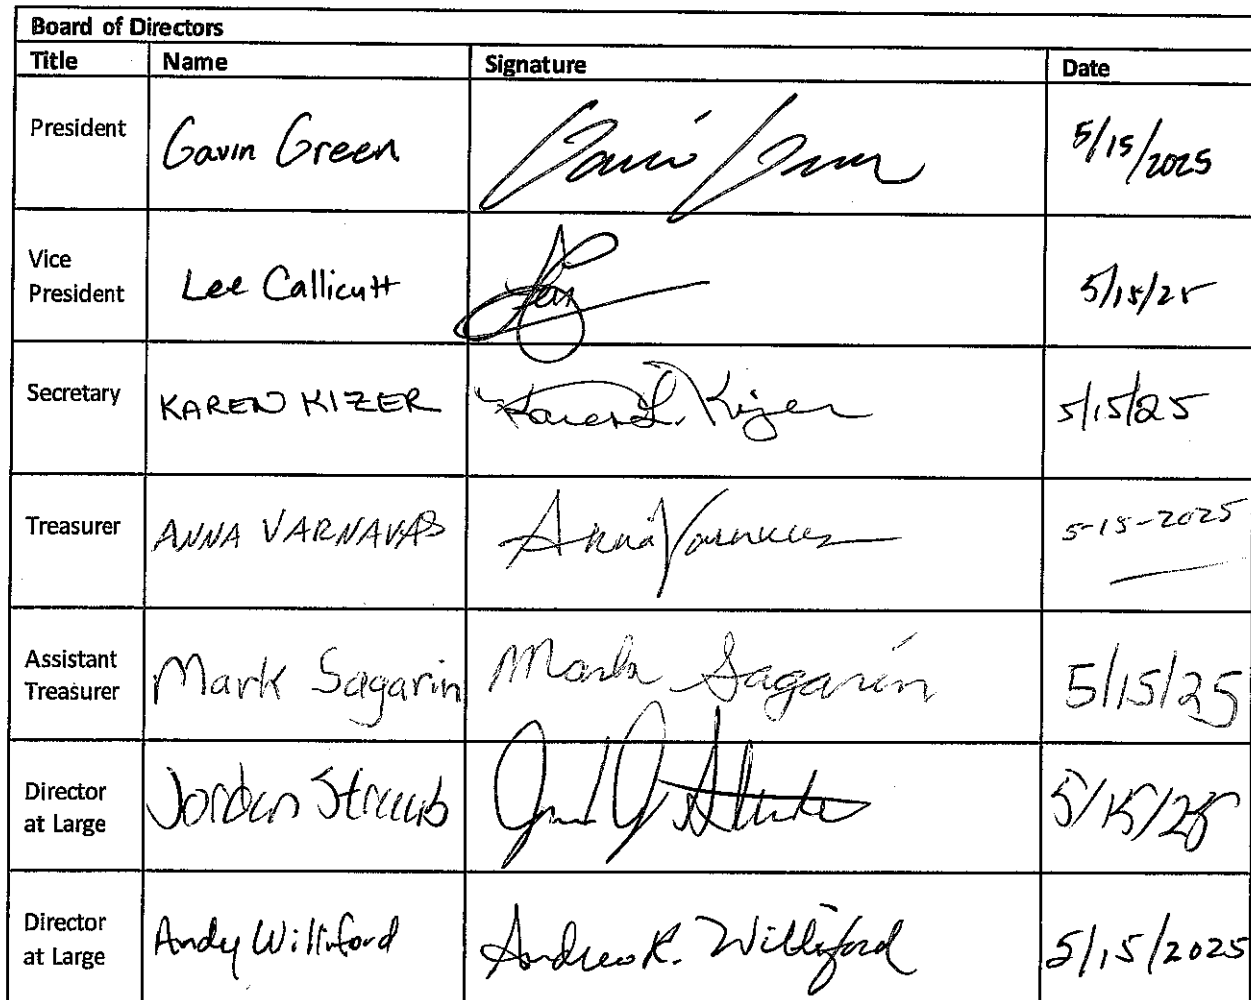 Board of Directors
Title Name Signature Date
President Gavin Green 5/15/2025
Vice President Lee Callicutt 5/15/25
Secretary KAREN KIZER Karen L. Kizer 5/15/25
Treasurer ANNA VARNAVAS Anna Varnavas 5-15-2025
Assistant Treasurer Mark Sagarin Mark Sagarin 5/15/25
Director at Large Jordan Straub 5/15/25
Director at Large Andy Williford Andrew R. Williford 5/15/2025